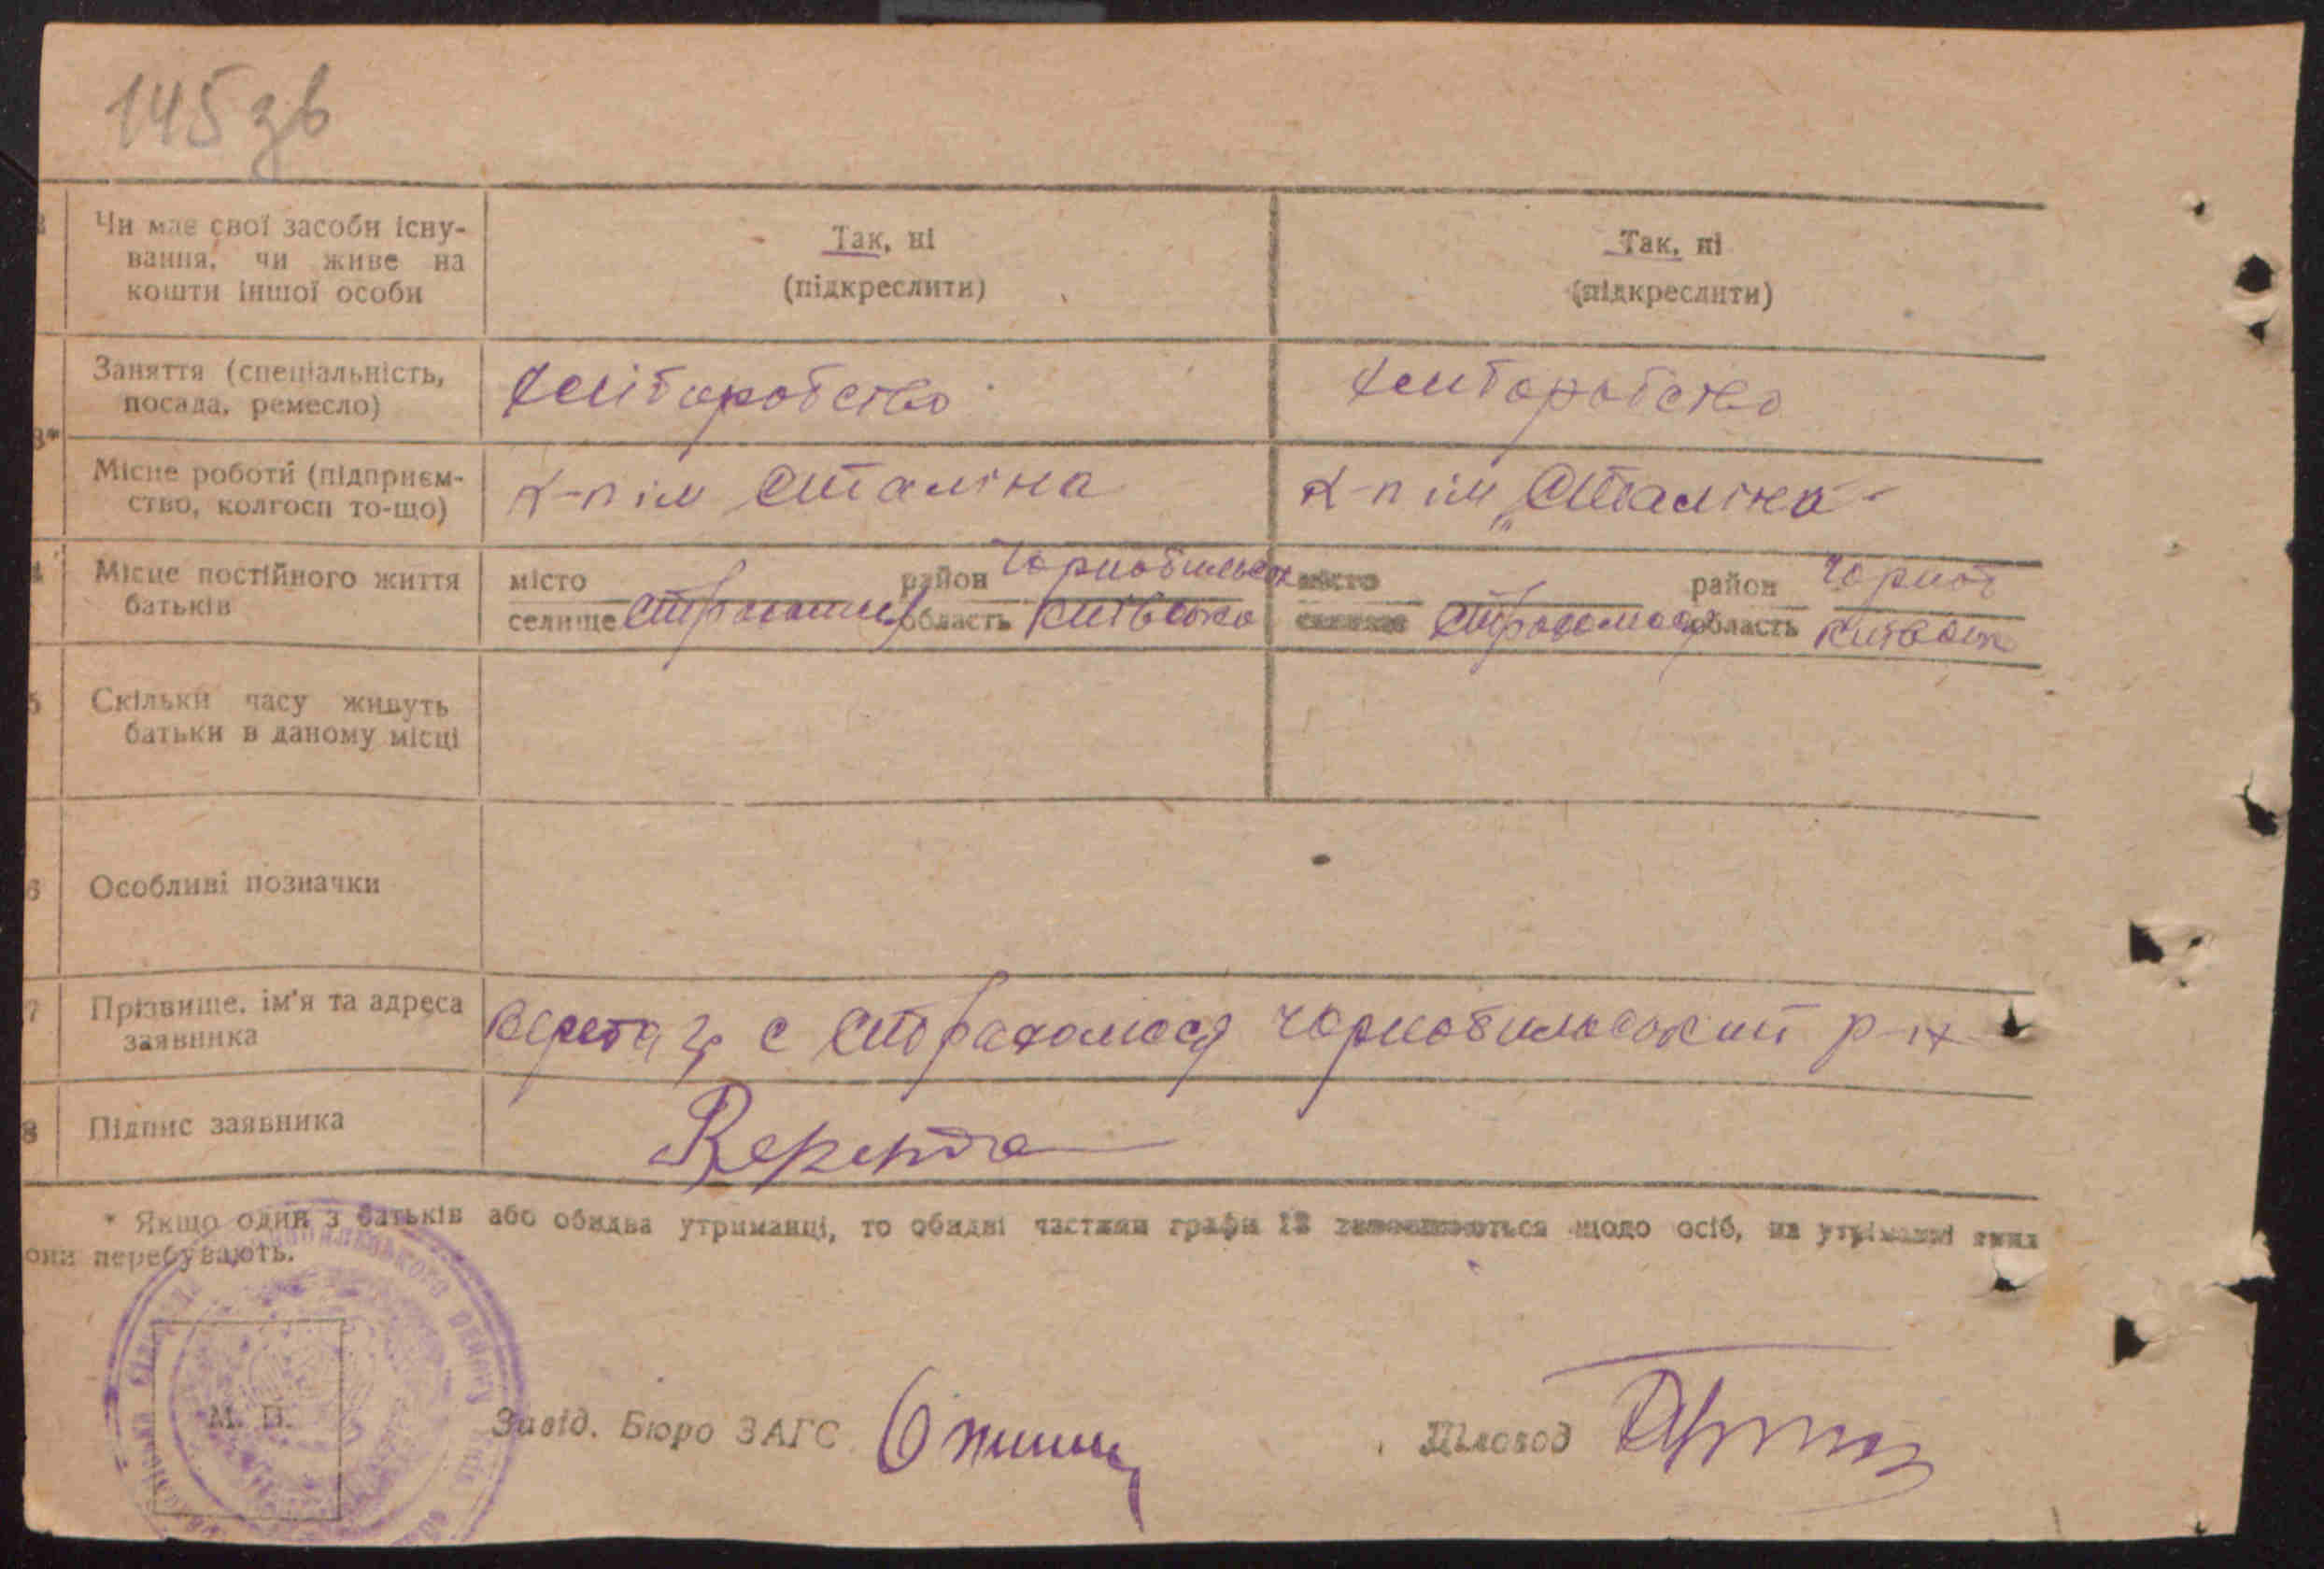 145 зв
Чи має свої засоби існу-
вання, чи живе на
кошти іншої особи
Так, ні
(підкреслити)
Так, ні
(підкреслити)
Заняття (спеціальність,
посада, ремесло)
хліборобство
хліборобство
3*
Місце роботи (підприєм-
ство, колгосп то-що)
к-п ім Сталіна
к-п ім „Сталіна"
Місце постійного життя
батьків
місто район Чорнобильськ
селище область Київська
місто район Чорноб
селище область Київськ
5
Скільки часу живуть
батьки в даному місці
6
Особливі позначки
7
Прізвище, ім'я та адреса
заявника
Верета с Страхолісся Чорнобильський р-н
8
Підпис заявника
Верета
* Якщо один з батьків або обидва утриманці, то обидві частини графи 13 заповнюються щодо осіб, на утриманні яких
они перебувають.
М. П.
Завід. Бюро ЗАГС
Діловод